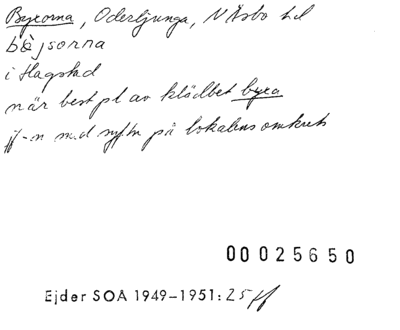 Byxorna, Oderljunga, N Åsbo hd
båjsorna
i Hagstad
när best pl av klädbet byxa
jf-n m.d syftn på lokalens omkrets
00025650
Ejder SOA 1949–1951: 25 ff